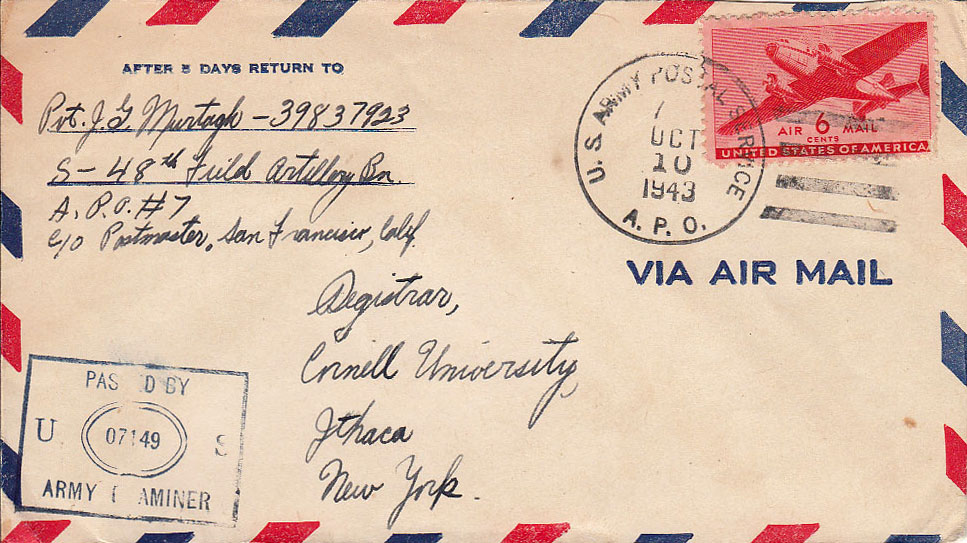 AFTER 5 DAYS RETURN TO
Pvt. J. G. Murtagh - 39837923
S-48th Field Artillery Bn.
A. P. O. #7
c/o Postmaster, San Francisco, Calif.
U. S. ARMY POSTAL SERVICE
OCT
10
1943
A. P. O.
AIR 6 MAIL
CENTS
UNITED STATES OF AMERICA
VIA AIR MAIL
Registrar,
Cornell University,
Ithaca
New York.
PAS D BY
U. S
07149
ARMY E AMINER